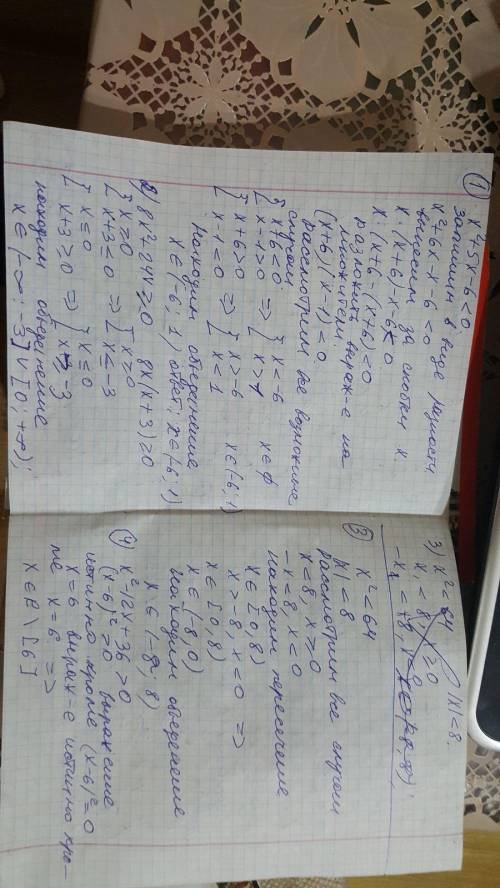 ①
x²+5x-6<0
Запишим в виде разности
x²+6x-x-6<0
вынесим за скобки x
x·(x+6)-x-6<0
x·(x+6)-(x+6)<0
разложить выраж-е на
множители.
(x+6)(x-1)<0
рассмотрим все возможные
случаи
{ x+6<0
{ x-1>0 => { x<-6
{ x>1 x∈ф
{ x+6>0
{ x-1<0 => { x>-6
{ x<1 x∈(-6;1)
Находим объединение
x∈(-6;1) ответ: x∈(-6;1)
2) 8x²+24x≥0 8x(x+3)≥0
{ x≥0
{ x+3≤0 => { x≥0
{ x≤-3
{ x≤0
{ x+3≥0 => { x≤0
{ x≥-3
находим объединение
x∈(-∞;-3]∨[0;+∞);
3) x²<64 |x|<8.
③ x²<64
|x|<8
рассмотрим все случаи
x<8, x≥0
-x<8, x<0
находим пересечение
x∈[0,8)
x>-8, x<0 =>
x∈[0,8)
x∈(-8,0)
Находим объединение
x∈(-8;8)
④ x²-12x+36>0
(x-6)²>0 выражение
истинно кроме (x-6)²=0
x=6 выраж-е истинно кро-
ме x=6 =>
x∈R\[6]